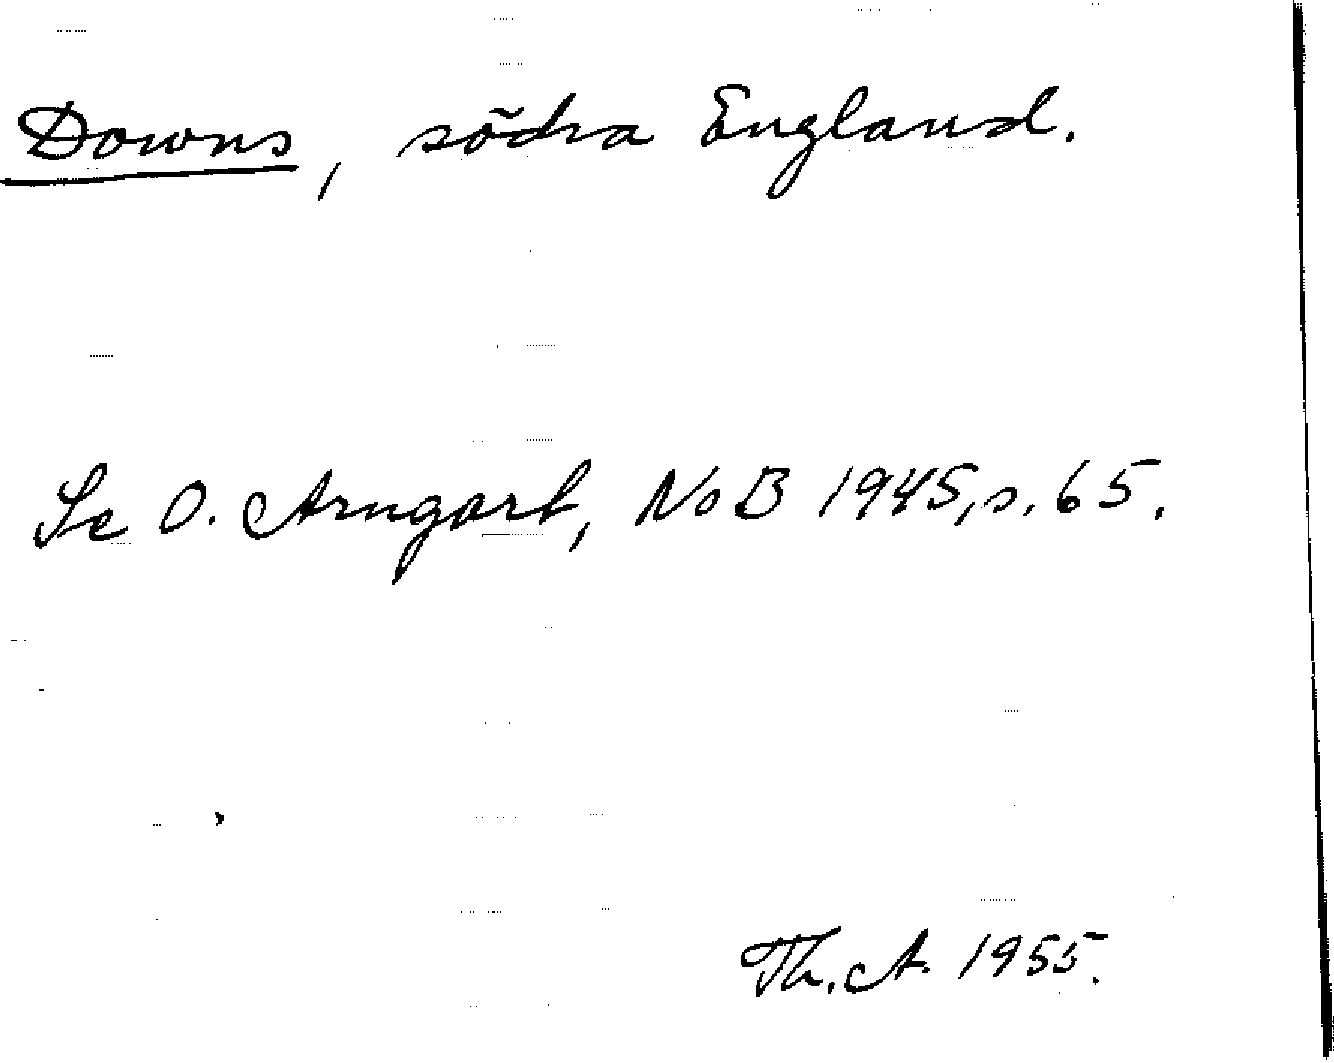 Downs, södra England.
Se O. Arngart, NoB 1945, s. 65.
Th. A. 1955.